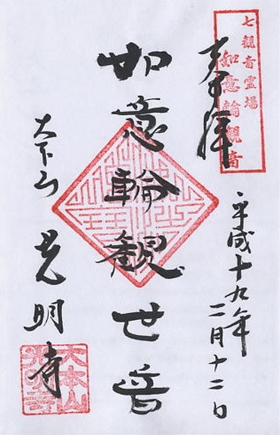 七観音霊場
如意輪観音
奉拝
平成十九年
二月十二日
如意輪観世音
天下山
光明寺
大本山
光明寺